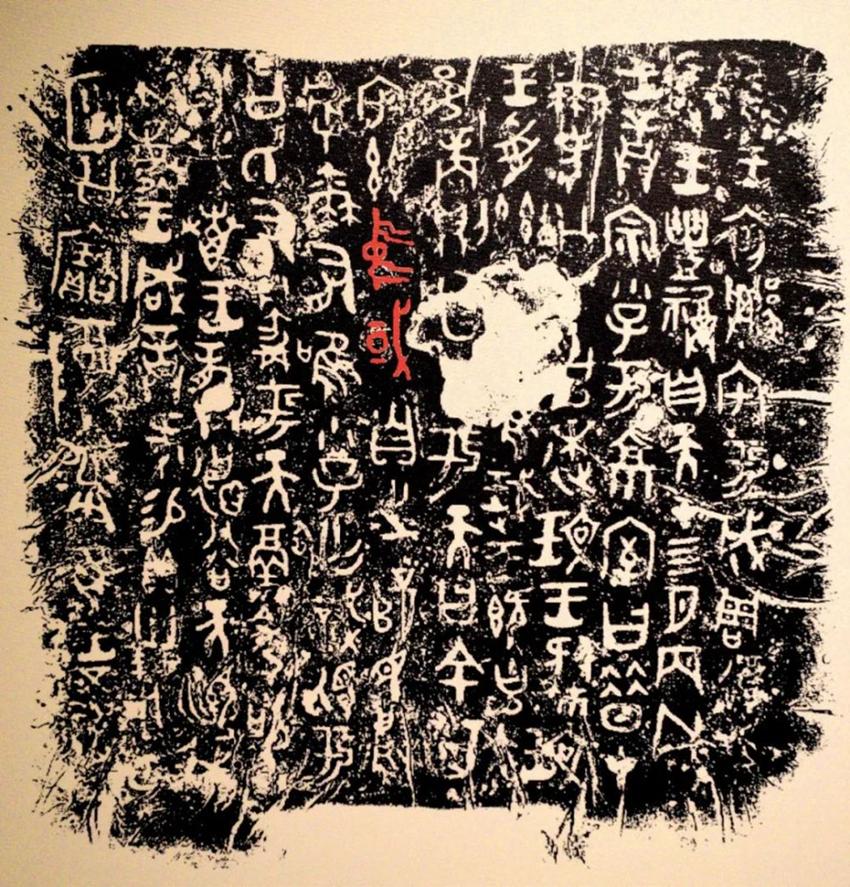 隹王初遷宅于成周復稟
王豊祼自天才四月丙戌
王誥宗小子于京室曰昔才
爾考公氏克逨玟王肆玟
王受茲大令隹珷王既克大
邑商則廷告于天曰余其
宅茲中或自之乂民烏
虖爾有唯小子亡識視于
公氏有爵于天徹令敬
享哉叀王龏德裕天順我
不敏王咸誥何易貝卅朋用乍
公寶尊彝隹王五祀